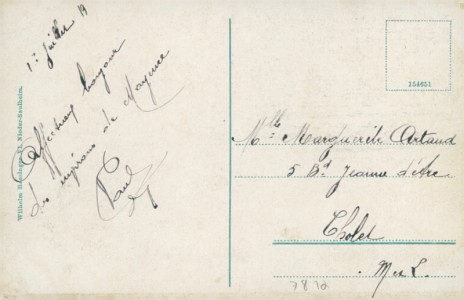 1er juillet 19
Affectueux bonjour
des environs de Mayence
Paul
Wilhelm
Nieder-Saulheim.
154651
Mlle Marguerite Artaud
5 Bd Jeanne d'Arc
Cholet
M et L.
7810